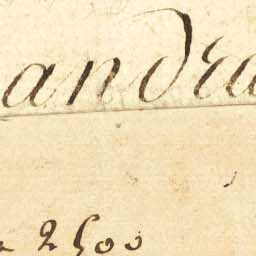 andra
2500